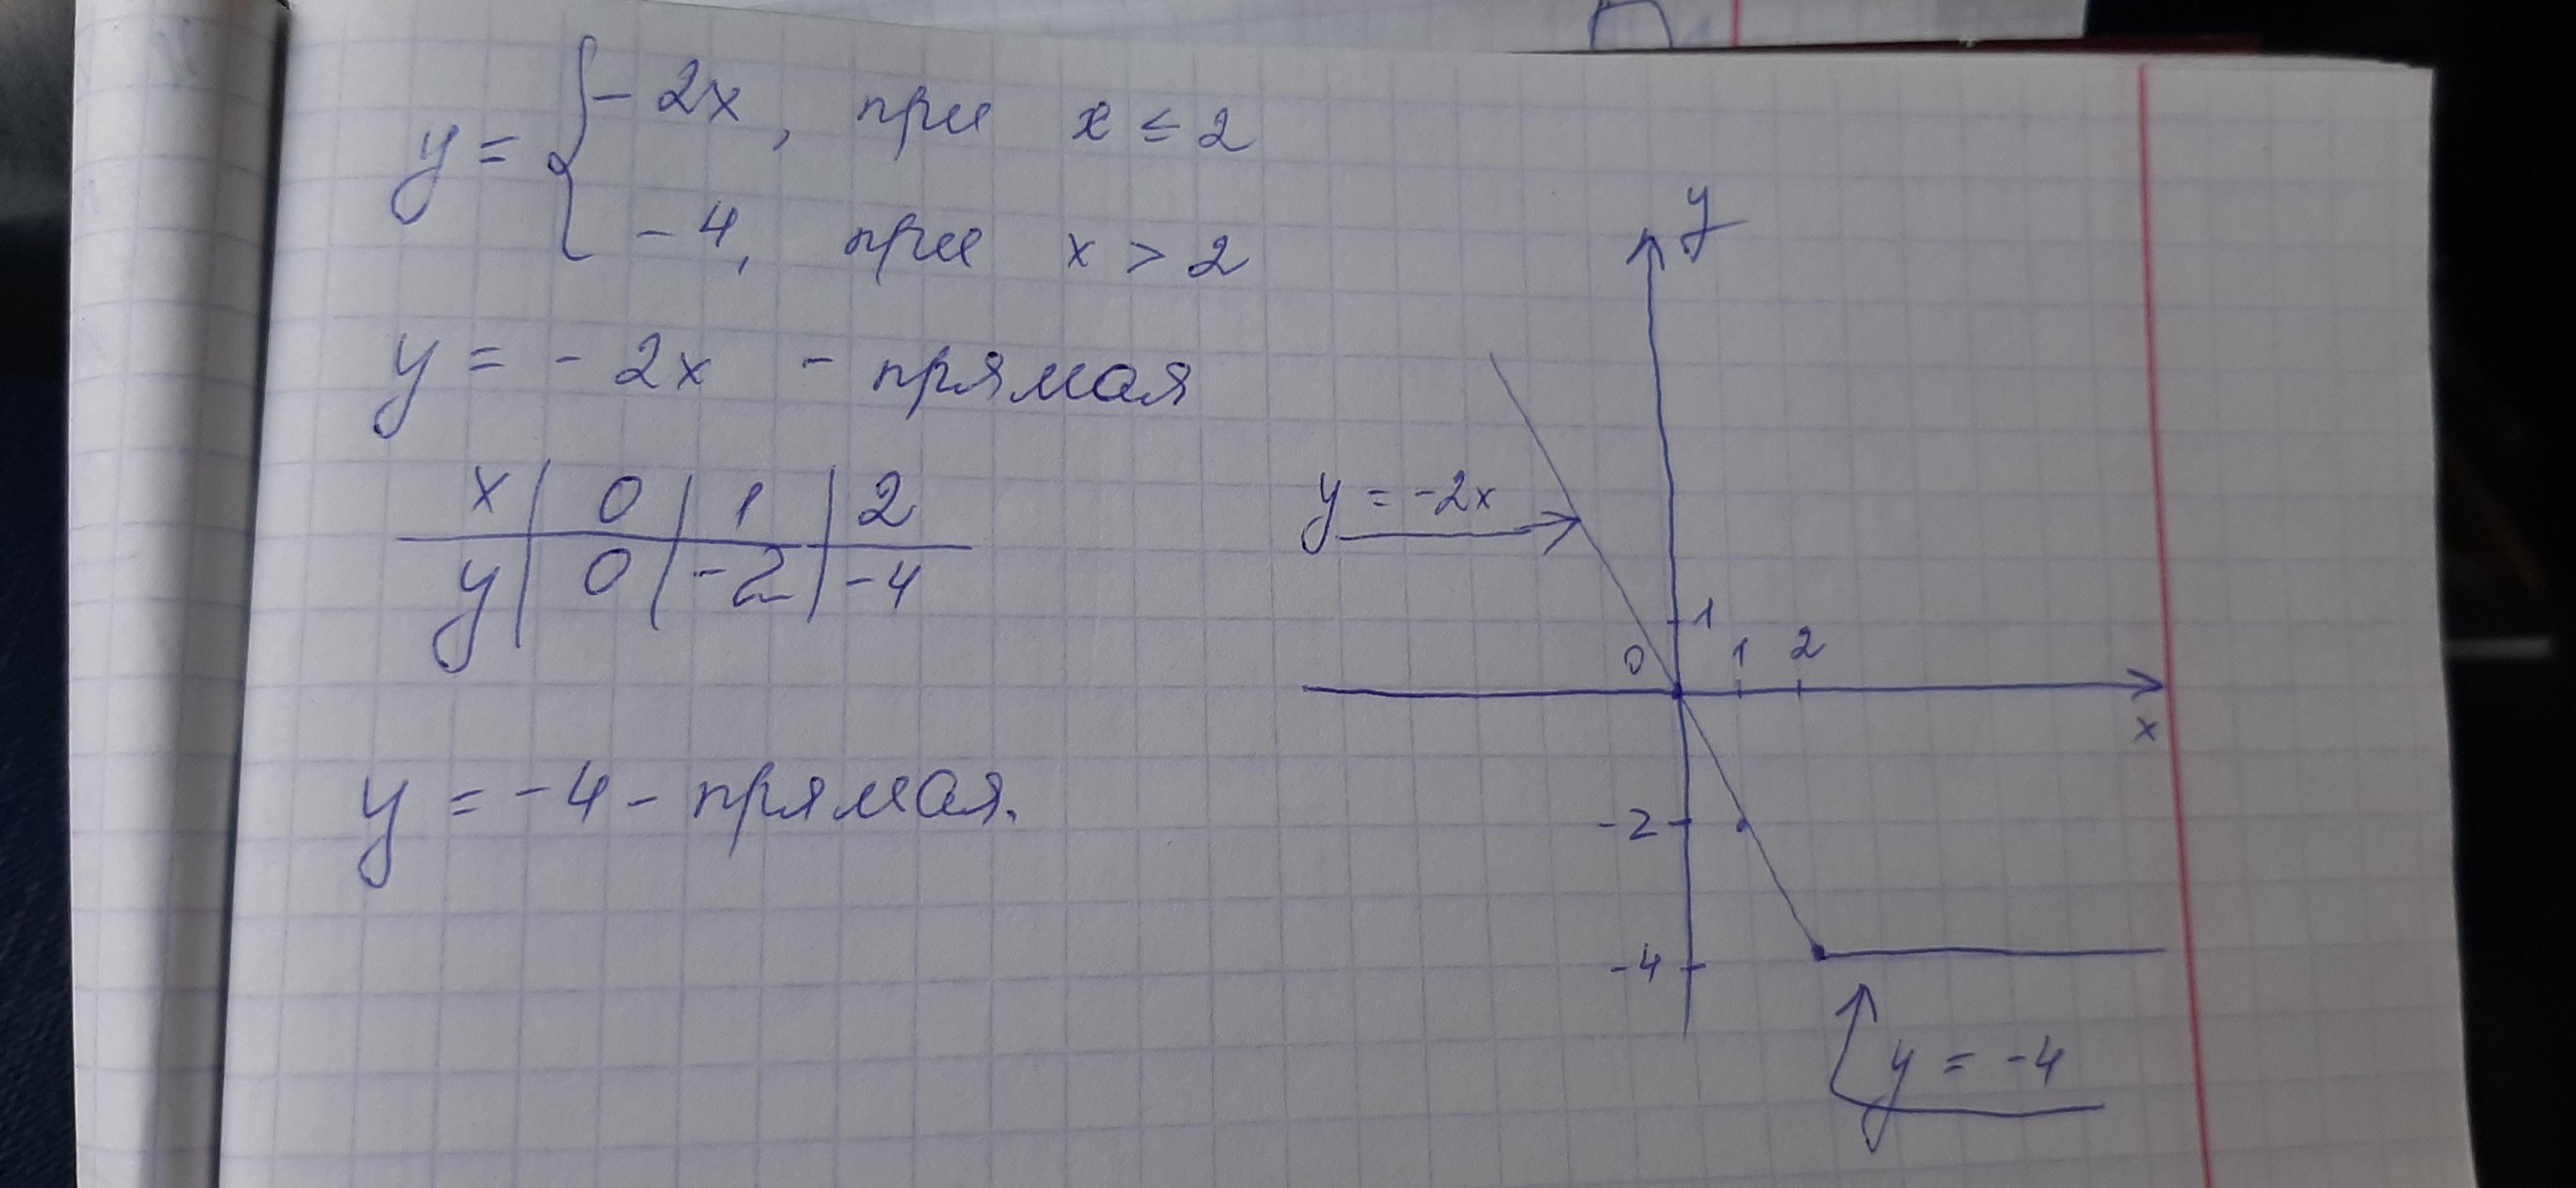 y = { -2x, при x ≤ 2
-4, при x > 2
y = -2x - прямая
x | 0 | 1 | 2
y | 0 | -2 | -4
y = -4 - прямая.
y
y = -2x
1
0 1 2
x
-2
-4
y = -4